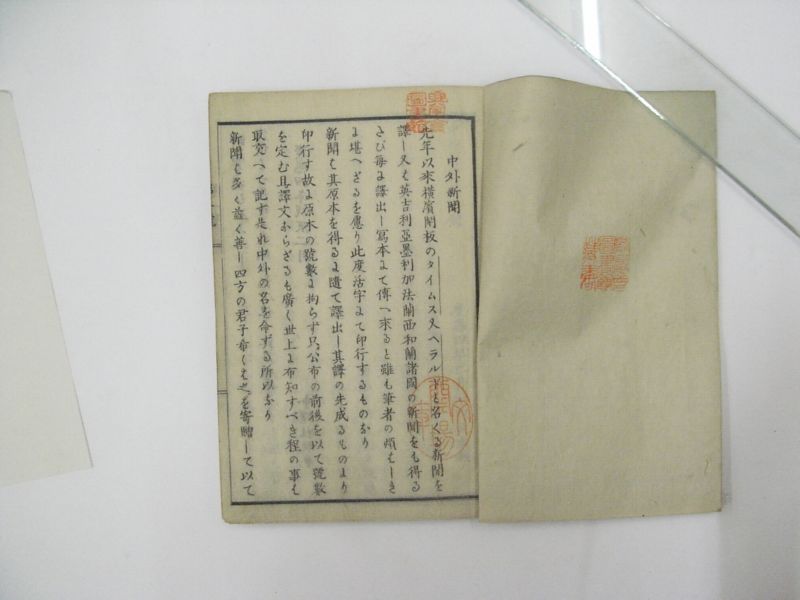 中外新聞
先年以來横濱開板のタイムス又ヘラルドと名くる新聞を
譯し又も英吉利亞墨利加法蘭西和蘭諸國の新聞をも得る
さび毎よ譯出し寫本よて傳へ來ると雖も筆者の煩もしき
よ堪へざるを慮り此度活字よて印行するものなり
新聞も其原本を得るよ隨て譯出し其譯の先成るものより
印行す故よ原本の號數よ拘らず只公布の前後を以て號數
を定む且譯文ならざるも廣く世上よ布知すべき程の事も
取交へて記す是れ中外の名を命ずる所以なり
新聞も多く益く善し四方の君子希くも之を寄贈して以て